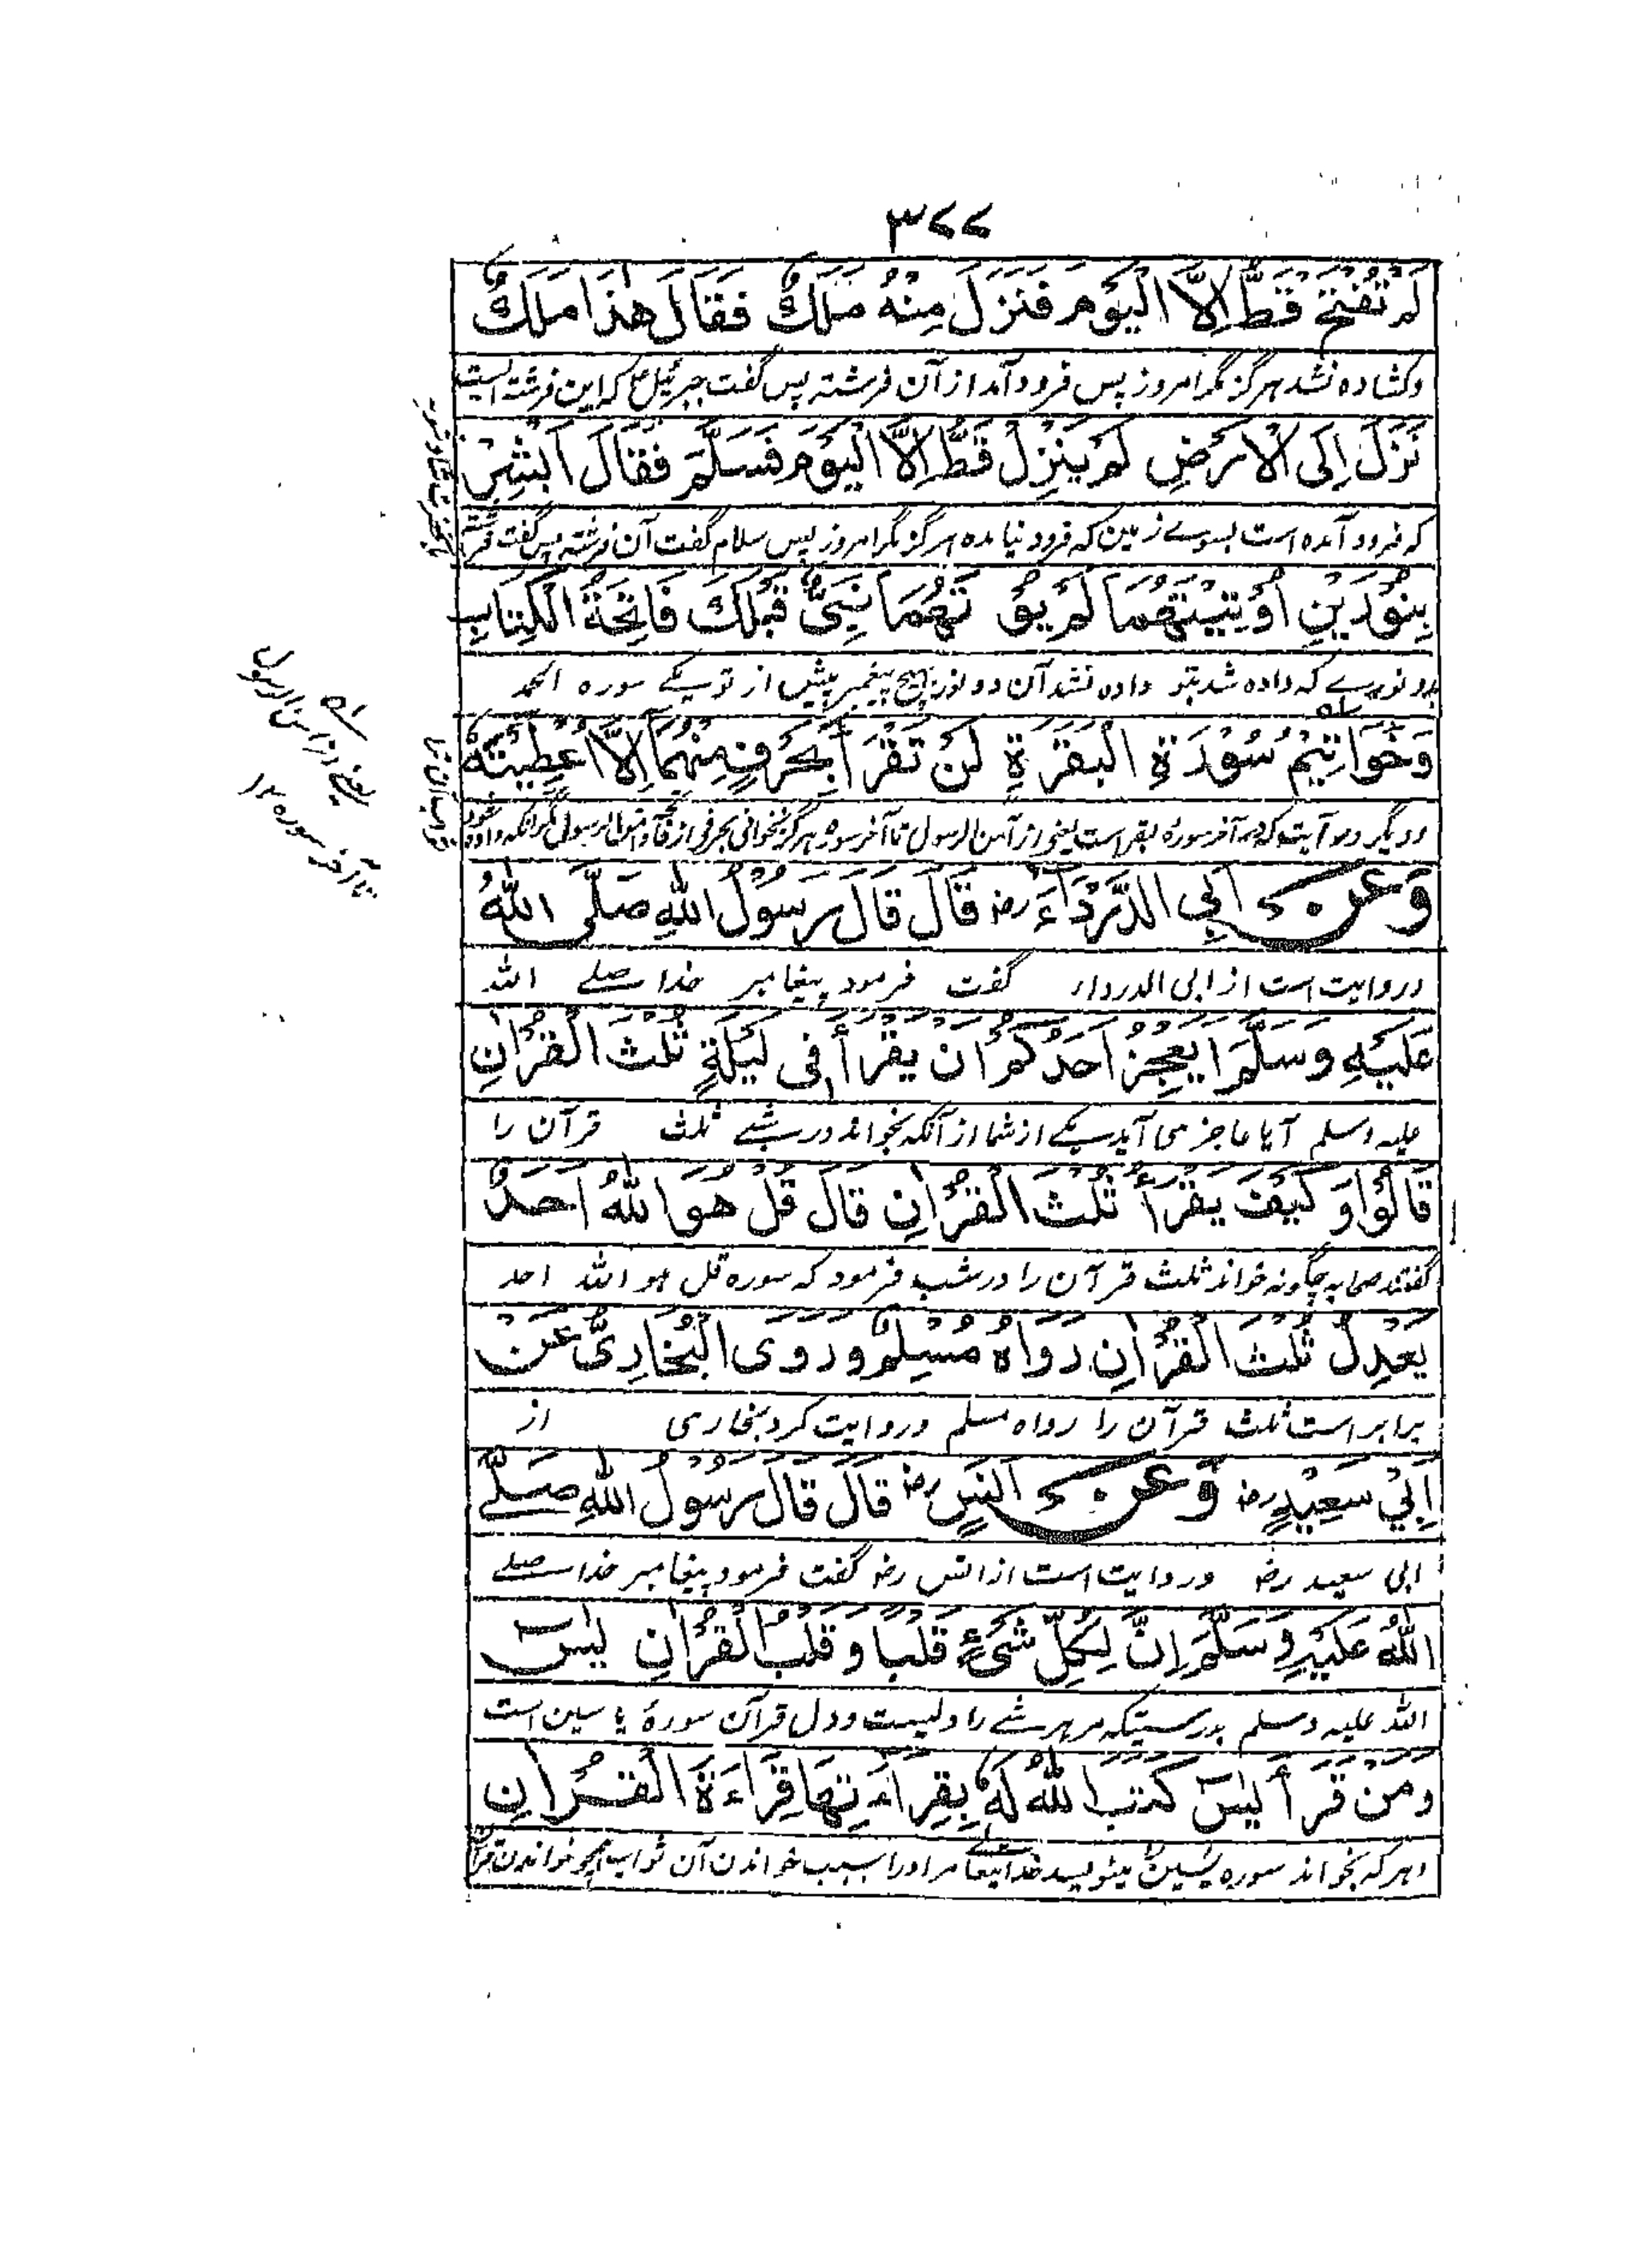 ۳۷۷
لَمْ تُفْتَحْ قَطُّ اِلَّا الْيَوْمَ فَنَزَلَ مِنْهُ مَلَكٌ فَقَالَ هٰذَا مَلَكٌ
وکشاده نشد هرگز مگر امروز پس فرود آمد از آن فرشته پس گفت جبرئیل که این فرشته ایست
نَزَلَ اِلَى الْاَرْضِ لَمْ يَنْزِلْ قَطُّ اِلَّا الْيَوْمَ فَسَلَّمَ فَقَالَ اَبْشِرْ
که فرود آمده است بسوے زمین که فرود نیامده هرگز مگر امروز پس سلام گفت آن فرشته پس گفت
بِنُوْرَيْنِ اُوْتِيْتَهُمَا لَمْ يُؤْتَهُمَا نَبِيٌّ قَبْلَكَ فَاتِحَةُ الْكِتَابِ
بدو نورے که داده شد بتو داده نشد آن دو نور هیچ پیغمبر پیش از تو یکے سوره الحمد
وَخَوَاتِيْمُ سُوْرَةِ الْبَقَرَةِ لَنْ تَقْرَأَ بِحَرْفٍ مِنْهُمَا اِلَّا اُعْطِيْتَهُ
ودیگر دو آیت که در آخر سورۀ بقر است یعنی از آمن الرسول تا آخر سوره هرگز نخوانی بحرفی از
وَعَنْ اَبِي الدَّرْدَاءَ رض قَالَ قَالَ رَسُوْلُ اللّٰهِ صَلَّى اللّٰهُ
وروایت است از ابی الدرداء گفت فرمود پیغامبر خدا صلے الله
عَلَيْهِ وَسَلَّمَ اَيَعْجِزُ اَحَدُكُمْ اَنْ يَقْرَأَ فِى لَيْلَةٍ ثُلُثَ الْقُرْاٰنِ
علیه وسلم آیا عاجز می آید یکے از شما از آنکه بخواند در شبے ثلث قرآن را
قَالُوْا وَكَيْفَ يَقْرَأُ ثُلُثَ الْقُرْاٰنِ قَالَ قُلْ هُوَ اللّٰهُ اَحَدٌ
گفتند صحابه چگونه خواند ثلث قرآن را در شب فرمود که سوره قل هو الله احد
يَعْدِلُ ثُلُثَ الْقُرْاٰنِ رَوَاهُ مُسْلِمٌ وَرَوَى الْبُخَارِيُّ عَنْ
برابر است ثلث قرآن را رواه مسلم وروایت کرد بخاری از
اَبِيْ سَعِيْدٍ رض وَعَنْ اَنَسٍ رض قَالَ قَالَ رَسُوْلُ اللّٰهِ صَلَّے
ابی سعید رض وروایت است از انس رض گفت فرمود پیغامبر خدا صلے
اللّٰهُ عَلَيْهِ وَسَلَّمَ اِنَّ لِكُلِّ شَىْءٍ قَلْبًا وَقَلْبُ الْقُرْاٰنِ يٰسٓ
الله علیه وسلم بدرستیکه مر هر شے را دلیست ودل قرآن سورۀ یاسین است
وَمَنْ قَرَأَ يٰسٓ كَتَبَ اللّٰهُ لَهٗ بِقِرَاءَتِهَا قِرَاءَةَ الْقُرْاٰنِ
وهر که بخواند سوره یٰسین مینویسد خدایتعالے مر او را بسبب خواندن آن ثواب همچو خواندن قرآن
یعنے از آمن الرسول
تا آخر سوره ۱۲